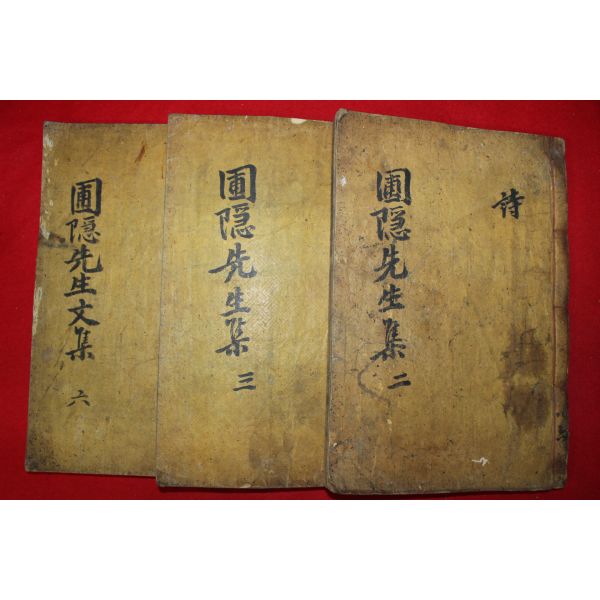 詩
圃隠先生集 二
圃隠先生集 三
圃隠先生文集 六